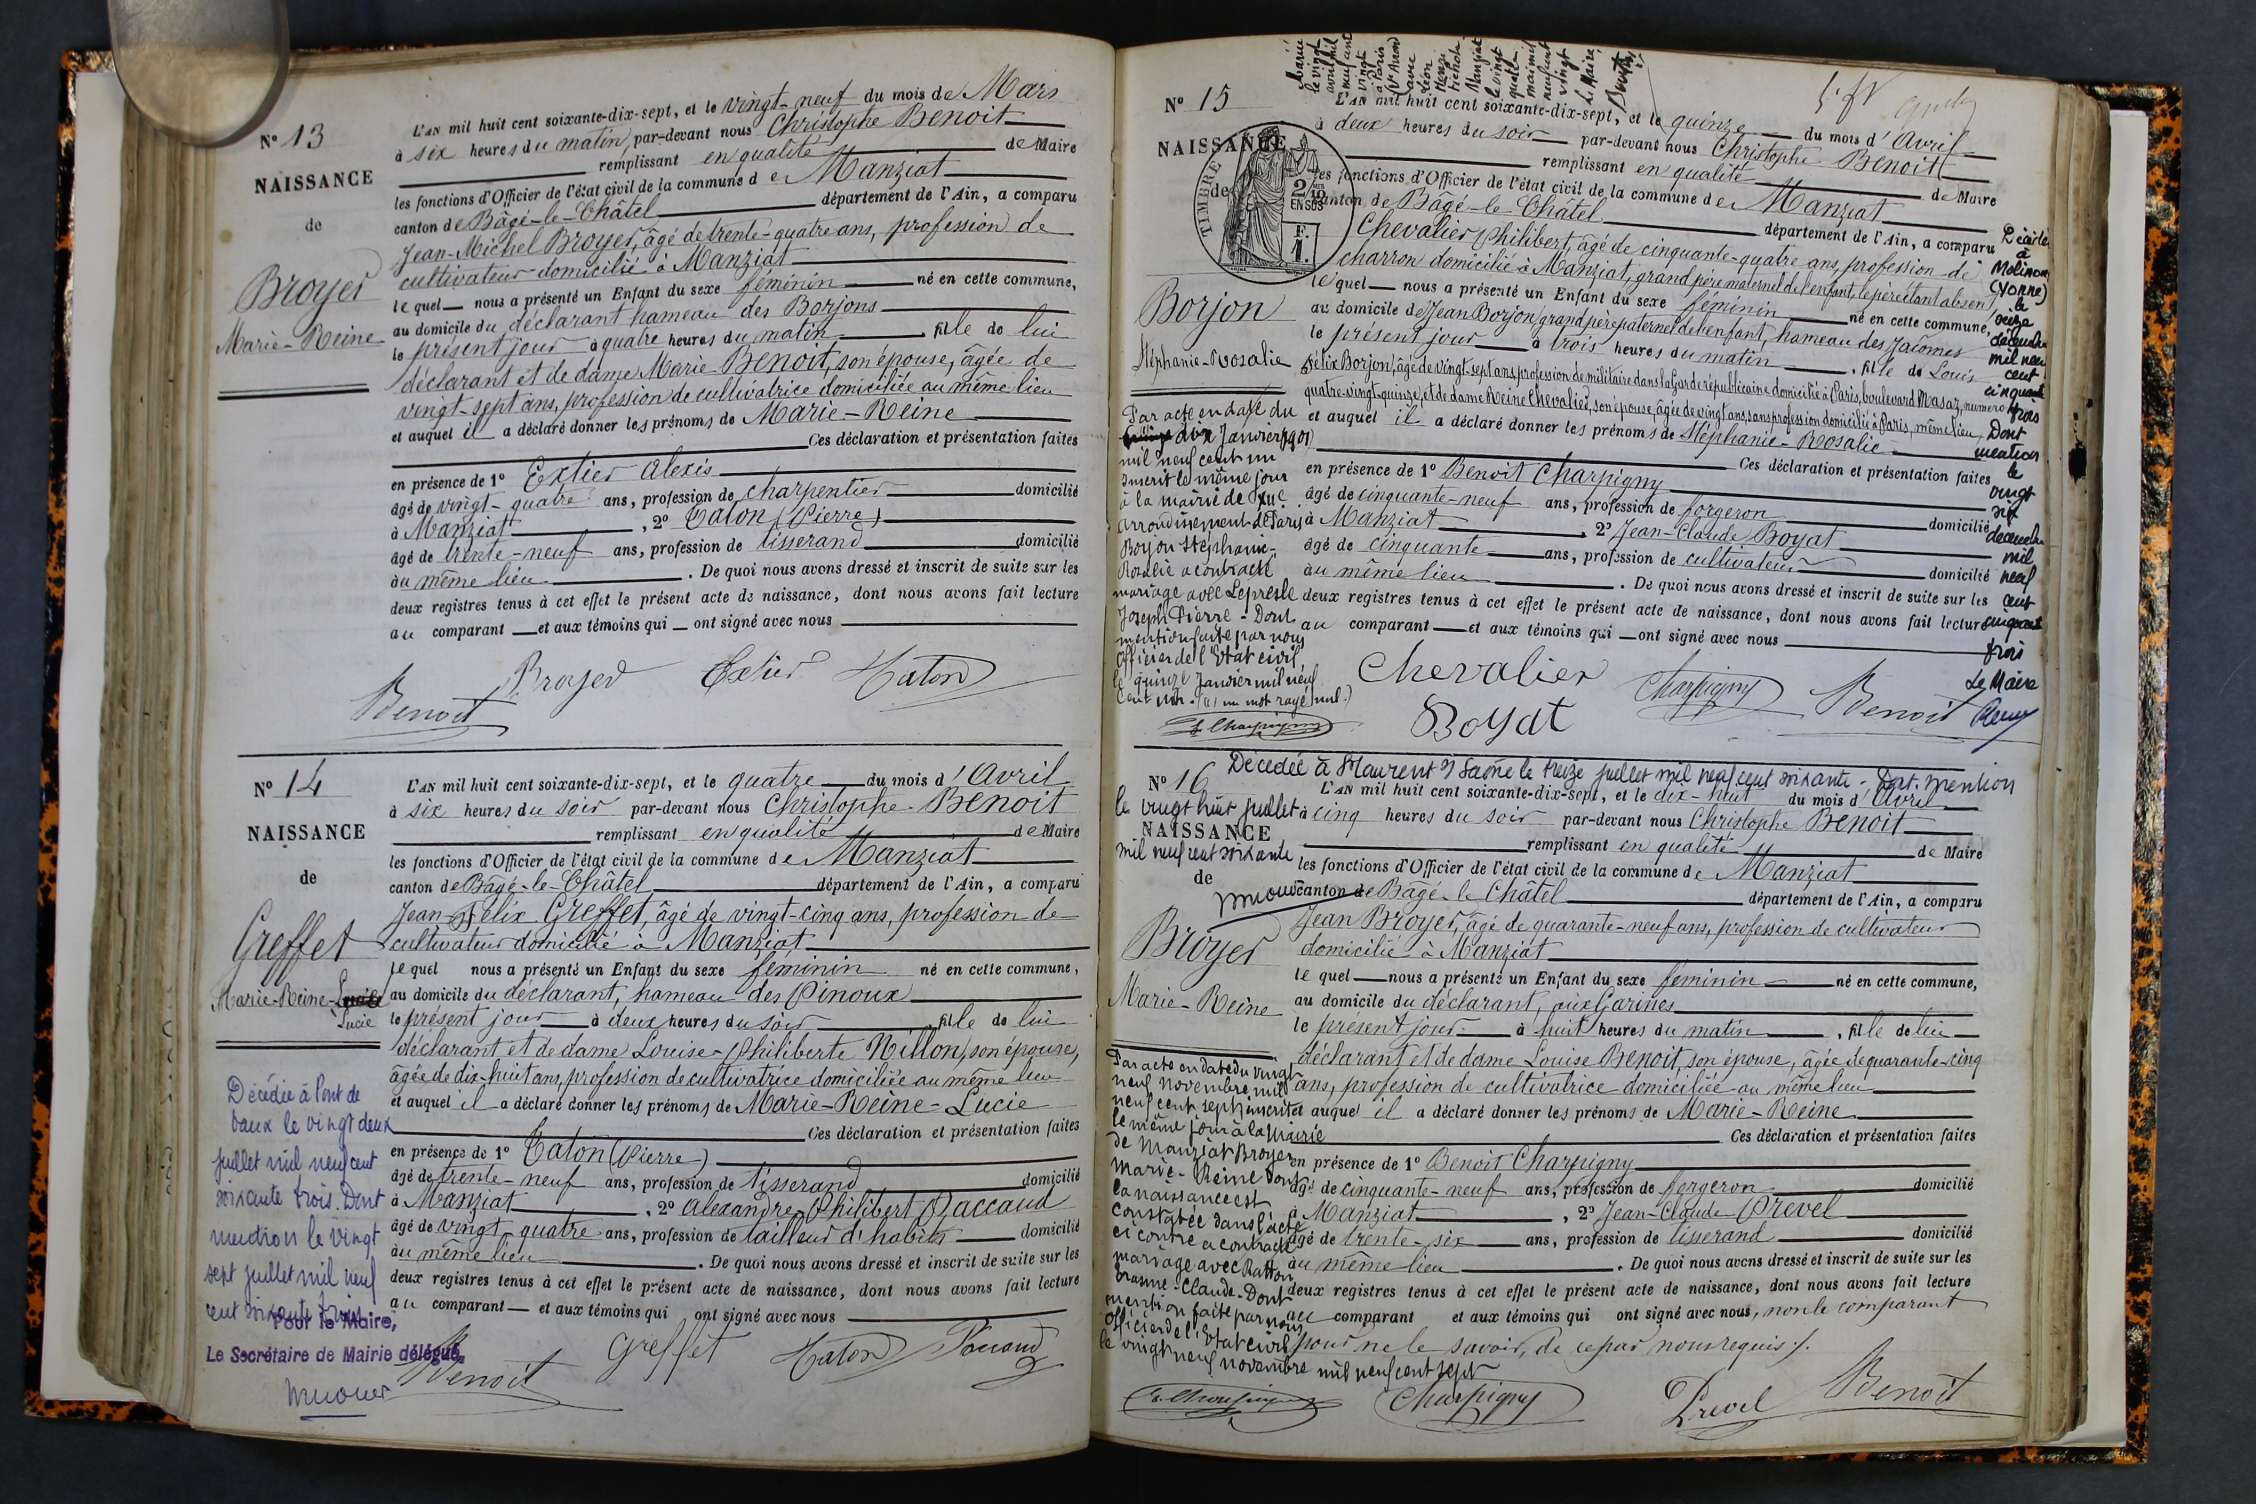 Nº 13
NAISSANCE
de
Broyer
Marie-Reine
L'AN mil huit cent soixante-dix-sept, et le vingt-neuf du mois de Mars
à six heures du matin, par-devant nous Christophe Benoit
remplissant en qualité de Maire
les fonctions d'Officier de l'état civil de la commune de Manziat
canton de Bâgé-le-Châtel département de l'Ain, a comparu
Jean-Michel Broyer, âgé de trente-quatre ans, profession de
cultivateur domicilié à Manziat
le quel nous a présenté un Enfant du sexe féminin né en cette commune,
au domicile du déclarant hameau des Borjons
le présent jour à quatre heures du matin, fille de lui
déclarant et de dame Marie Benoit, son épouse, âgée de
vingt-sept ans, profession de cultivatrice domiciliée au même lieu
et auquel il a déclaré donner les prénoms de Marie-Reine
Ces déclaration et présentation faites
en présence de 1º Extier Alexis
âgé de vingt-quatre ans, profession de charpentier domicilié
à Manziat, 2º Caton (Pierre)
âgé de trente-neuf ans, profession de tisserand domicilié
au même lieu. De quoi nous avons dressé et inscrit de suite sur les
deux registres tenus à cet effet le présent acte de naissance, dont nous avons fait lecture
au comparant et aux témoins qui ont signé avec nous
Broyer Extier Caton
Benoit
Nº 14
NAISSANCE
de
Greffet
Marie-Reine-
Lucie
L'AN mil huit cent soixante-dix-sept, et le quatre du mois d'Avril
à six heures du soir par-devant nous Christophe Benoit
remplissant en qualité de Maire
les fonctions d'Officier de l'état civil de la commune de Manziat
canton de Bâgé-le-Châtel département de l'Ain, a comparu
Jean-Félix Greffet, âgé de vingt-cinq ans, profession de
cultivateur domicilié à Manziat
le quel nous a présenté un Enfant du sexe féminin né en cette commune,
au domicile du déclarant, hameau des Pinoux
le présent jour à deux heures du soir, fille de lui
déclarant et de dame Louise-Philiberte Nillon, son épouse,
âgée de dix-huit ans, profession de cultivatrice domiciliée au même lieu
et auquel il a déclaré donner les prénoms de Marie-Reine-Lucie
Ces déclaration et présentation faites
en présence de 1º Caton (Pierre)
âgé de trente-neuf ans, profession de tisserand domicilié
à Manziat, 2º Alexandre-Philibert Paccaud
âgé de vingt quatre ans, profession de tailleur d'habits domicilié
au même lieu. De quoi nous avons dressé et inscrit de suite sur les
deux registres tenus à cet effet le présent acte de naissance, dont nous avons fait lecture
au comparant et aux témoins qui ont signé avec nous
Greffet Caton Paccaud
Benoit
Décédée à Pont de
Vaux le vingt deux
juillet mil neuf cent
soixante trois. Dont
mention le vingt
sept juillet mil neuf
cent soixante trois.
Pour le Maire,
Le Secrétaire de Mairie délégué,
Nº 15
NAISSANCE
de
TIMBRE
2/10
EN SUS
F.
1.
Borjon
Stéphanie-Rosalie
Mariée
le vingt
avril mil
neuf cent
vingt
à Paris
avec
Léon
Manziat
le vingt
quatre
mai mil
neuf cent
vingt
Le Maire,
L'AN mil huit cent soixante-dix-sept, et le quinze du mois d'Avril
à deux heures du soir par-devant nous Christophe Benoit
remplissant en qualité de Maire
les fonctions d'Officier de l'état civil de la commune de Manziat
canton de Bâgé-le-Châtel département de l'Ain, a comparu
Chevalier Philibert, âgé de cinquante-quatre ans, profession de
charron domicilié à Manziat, grand père maternel de l'enfant, le père étant absent,
le quel nous a présenté un Enfant du sexe féminin né en cette commune,
au domicile de Jean Borjon, grand père paternel de l'enfant, hameau des Jacômes
le présent jour à trois heures du matin, fille de Louis
Félix Borjon, âgé de vingt-sept ans, profession de militaire dans la Garde républicaine domicilié à Paris, boulevard Masaz, numéro
quatre-vingt-quinze, et de dame Reine Chevalier, son épouse, âgée de vingt ans, sans profession domicilié à Paris, même lieu,
et auquel il a déclaré donner les prénoms de Stéphanie-Rosalie
Ces déclaration et présentation faites
en présence de 1º Benoit Charpigny
âgé de cinquante-neuf ans, profession de forgeron domicilié
à Manziat, 2º Jean-Claude Boyat
âgé de cinquante ans, profession de cultivateur domicilié
au même lieu. De quoi nous avons dressé et inscrit de suite sur les
deux registres tenus à cet effet le présent acte de naissance, dont nous avons fait lecture
au comparant et aux témoins qui ont signé avec nous
Chevalier Charpigny Benoit
Boyat
Par acte en date du
dix Janvier
mil neuf cent un
inscrit le même jour
à la mairie de
arrondissement de Paris
Borjon Stéphanie-
Rosalie a contracté
mariage avec Lepresle
Joseph Pierre - Dont
mention faite par nous
Officier de l'Etat civil
le quinze Janvier mil neuf
cent un. (un mot rayé nul.)
Charpigny
Décédée
à
Molinons
(Yonne)
le
seize
décembre
mil neuf
cent
cinquante
trois
Dont
mention
le
vingt
six
décembre
mil
neuf
cent
cinquante
trois
Le Maire
Nº 16
Décédée à St Laurent s/ Saône le treize juillet mil neuf cent soixante. Dont mention
le vingt huit juillet
mil neuf cent soixante
NAISSANCE
de
Broyer
Marie-Reine
L'AN mil huit cent soixante-dix-sept, et le dix-huit du mois d'Avril
à cinq heures du soir par-devant nous Christophe Benoit
remplissant en qualité de Maire
les fonctions d'Officier de l'état civil de la commune de Manziat
canton de Bâgé-le-Châtel département de l'Ain, a comparu
Jean Broyer, âgé de quarante-neuf ans, profession de cultivateur
domicilié à Manziat
le quel nous a présenté un Enfant du sexe féminin né en cette commune,
au domicile du déclarant, aux Garines
le présent jour à huit heures du matin, fille de lui
déclarant et de dame Louise Benoit, son épouse, âgée de quarante-cinq
ans, profession de cultivatrice domiciliée au même lieu
et auquel il a déclaré donner les prénoms de Marie-Reine
Ces déclaration et présentation faites
en présence de 1º Benoit Charpigny
âgé de cinquante-neuf ans, profession de forgeron domicilié
à Manziat, 2º Jean-Claude Prevel
âgé de trente-six ans, profession de tisserand domicilié
au même lieu. De quoi nous avons dressé et inscrit de suite sur les
deux registres tenus à cet effet le présent acte de naissance, dont nous avons fait lecture
au comparant et aux témoins qui ont signé avec nous, non le comparant
pour ne le savoir, de ce par nous requis./.
Charpigny Prevel Benoit
Par acte en date du vingt
neuf novembre mil
neuf cent sept, inscrit
le même jour à la Mairie
de Manziat Broyer
Marie-Reine dont
la naissance est
constatée dans l'acte
ci contre a contracté
mariage avec Ratton
Claude. Dont
mention faite par nous
Officier de l'Etat civil
le vingt neuf novembre mil neuf cent sept
Charpigny